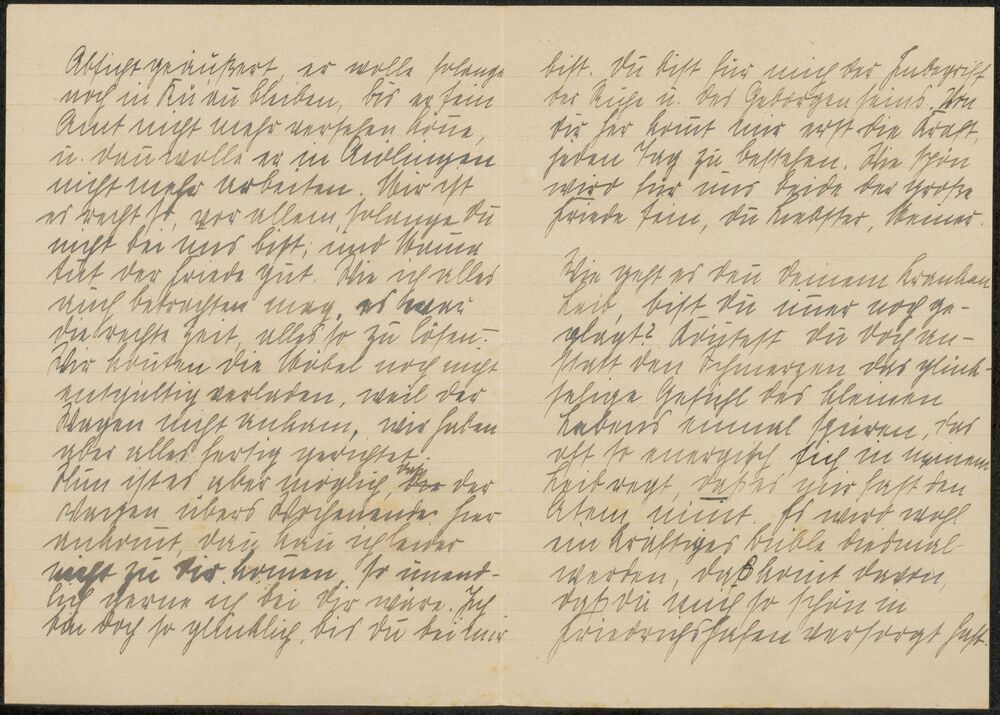 Absicht geäußert, er wolle solange
noch in Kudu bleiben, bis er sein
Amt nicht mehr versehen köne,
u. dan wolle er in Aidlingen
nicht mehr arbeiten. Mir ist
es recht so, vor allem, solange Du
nicht bei uns bist, und Mama
tut der Friede gut. Wie ich alles
auch betrachten mag, es war
die rechte Zeit, alles so zu lösen.-
Wir konten die Möbel noch nicht
entgültig verladen, weil der
Wagen nicht ankam, wir haben
aber alles fertig gerichtet.
Nun ist es aber möglich, dass der
Wagen übers Wochenende hier
ankomt, dan kan ich leider
nicht zu Dir komen, so unend-
lich gerne ich bei Dir wäre. Ich
bin doch so glücklich, bis Du bei mir
bist. Du bist für mich der Inbegriff
der Ruhe u. des Geborgenseins. Von
Dir her komt mir erst die Kraft,
jeden Tag zu bestehen. Wie schön
wird für uns beide der große
Friede sein, Du Liebster, Meiner.
Wie geht es den Deinem kranken
Leib, bist Du imer noch ge-
plagt? Köntest Du doch an-
statt den Schmerzen das glück-
selige Gefühl des kleinen
Lebens einmal spüren, das
oft so energisch sich in meinem
Leib regt, daß es mir fast den
Atem nimt. Es wird wohl
ein kräftiges Büble diesmal
werden, das komt davon,
daß Du mich so schön in
Friedrichshafen versorgt hast.